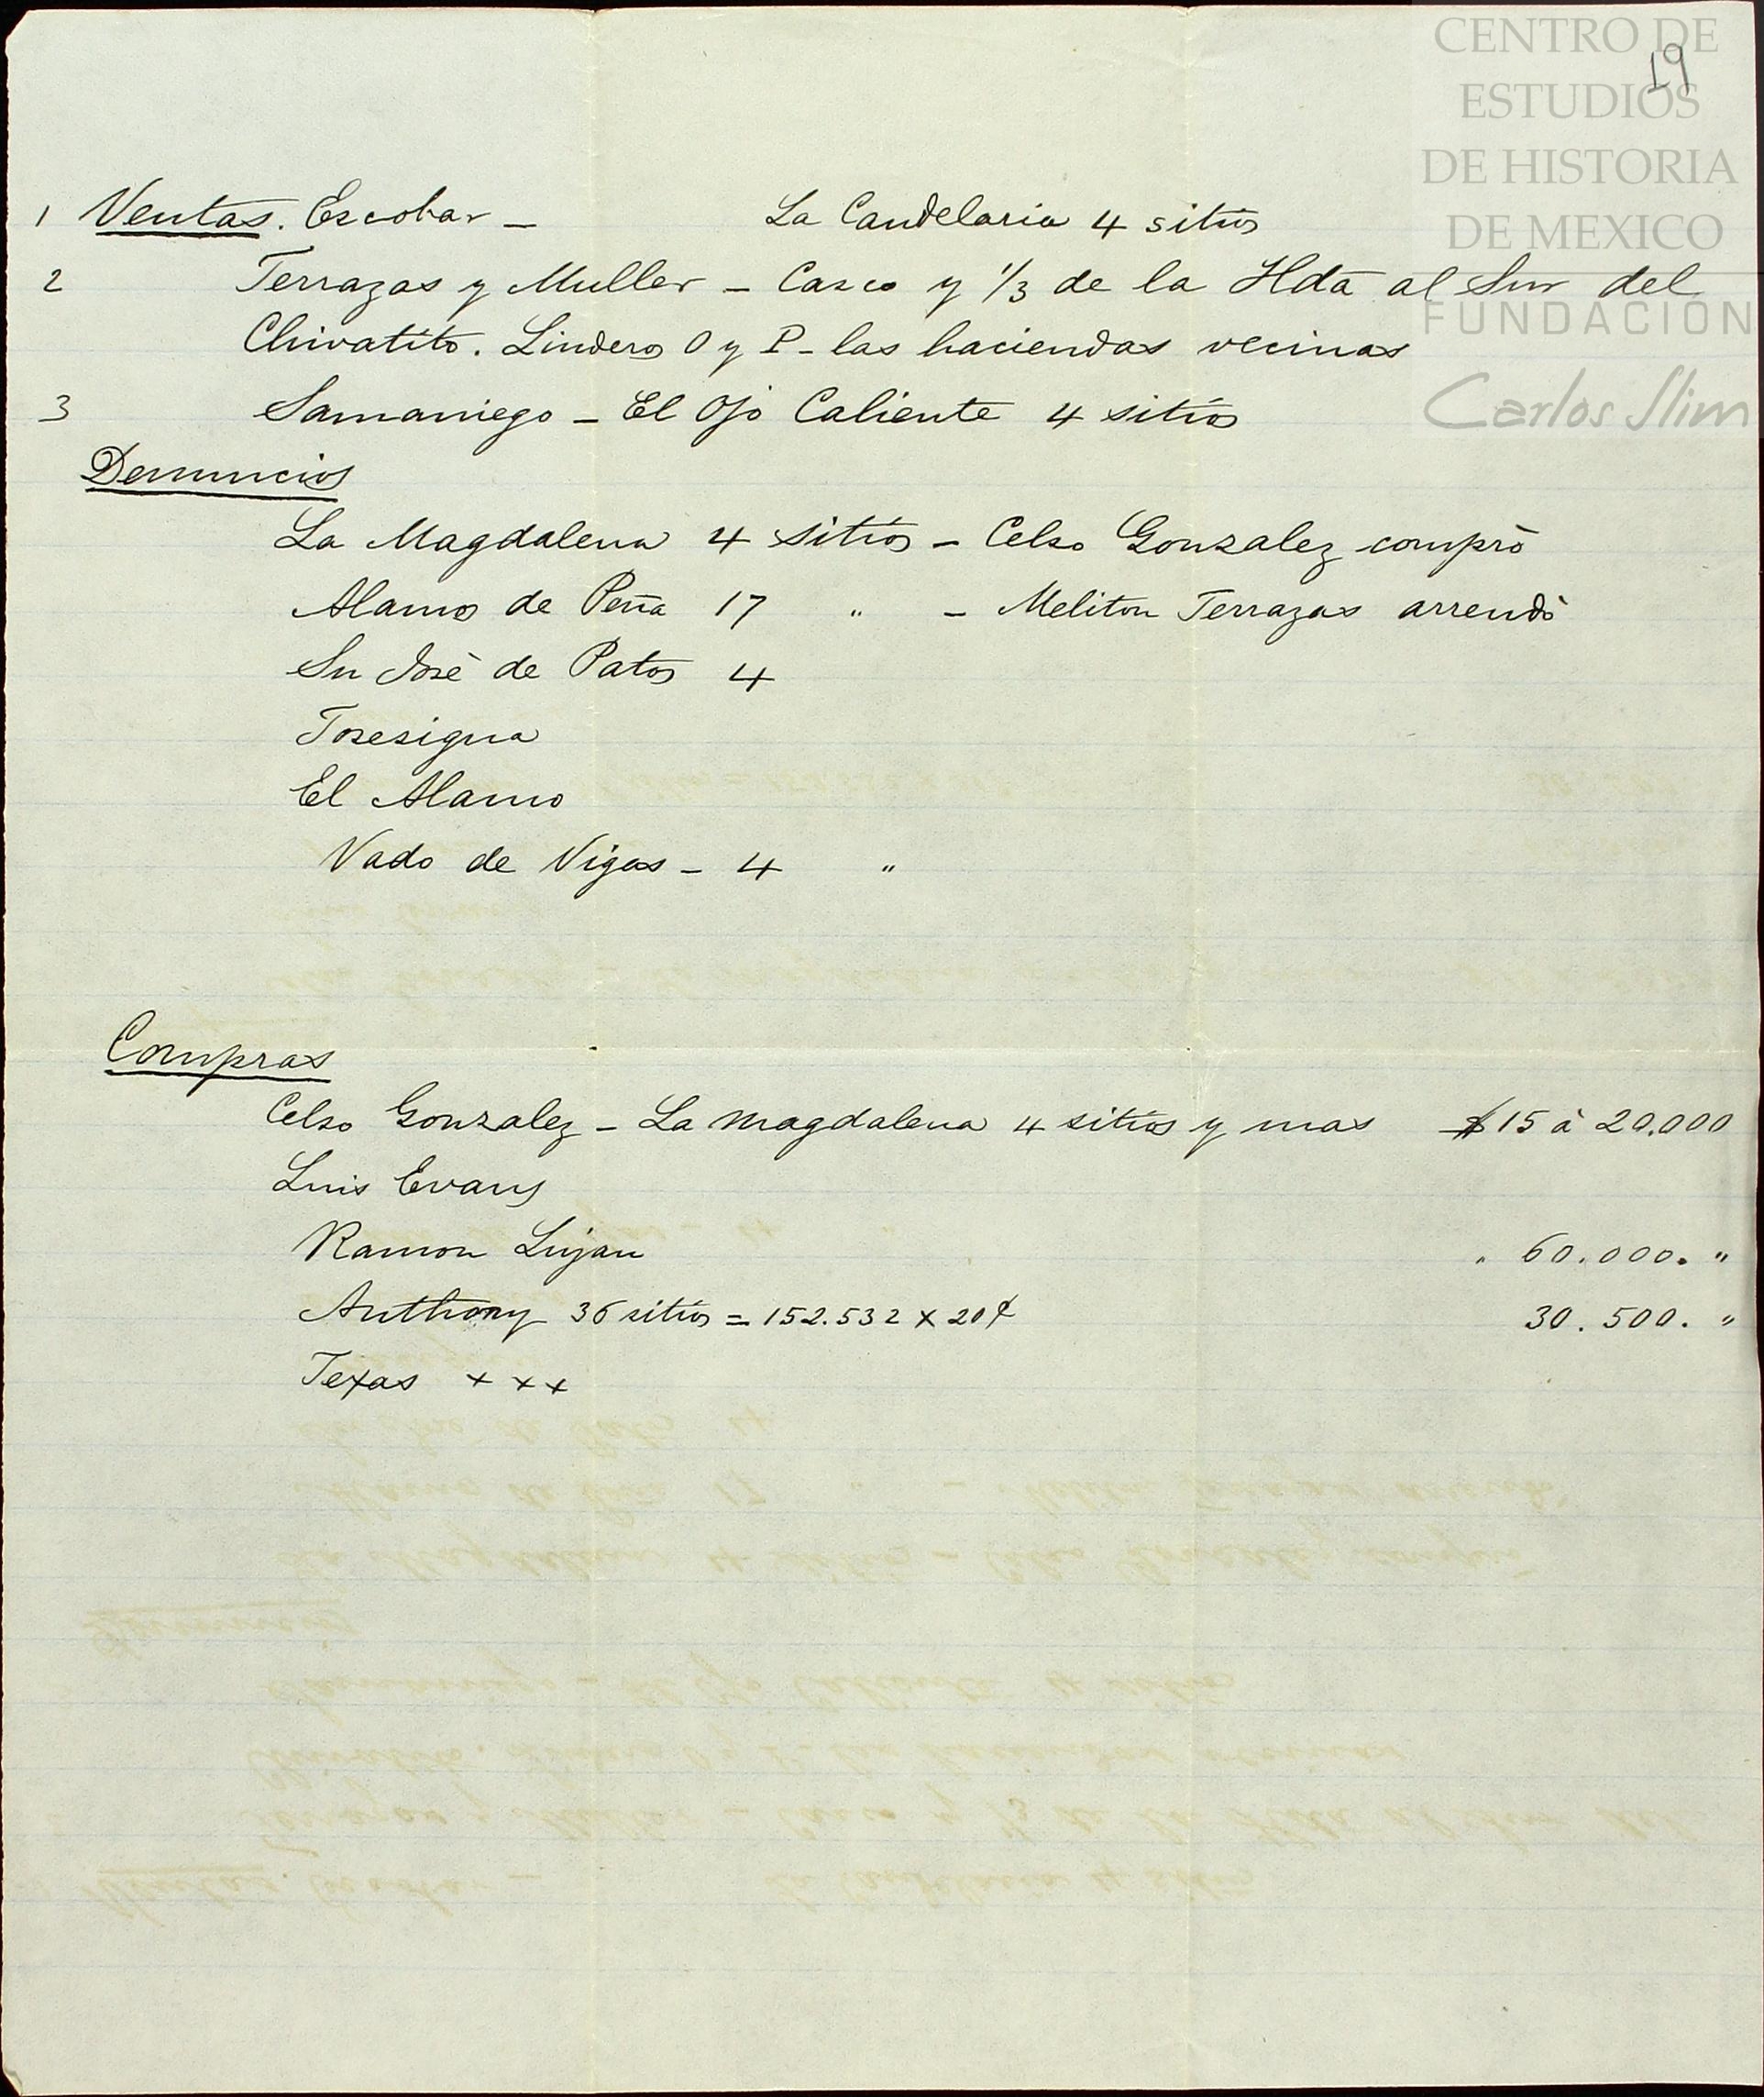 CENTRO DE
ESTUDIOS
DE HISTORIA
DE MEXICO
FUNDACIÓN
Carlos Slim
19
1 Ventas. Escobar – La Candelaria 4 sitios
2 Terrazas y Muller – Casco y 1/3 de la Hda al Sur del
Chivatito. Linderos O y P – las haciendas vecinas
3 Samaniego – El Ojo Caliente 4 sitios
Denuncios
La Magdalena 4 sitios – Celso Gonzalez comprò
Alamos de Peña 17 " – Meliton Terrazas arrendò
Sn Josè de Patos 4
Tosesigua
El Alamo
Vado de Vigas – 4 "
Compras
Celso Gonzalez – La Magdalena 4 sitios y mas $15 à 20.000
Luis Evans
Ramon Lujan " 60.000. "
Anthony 36 sitios = 152.532 x 20¢ 30.500. "
Texas x x x